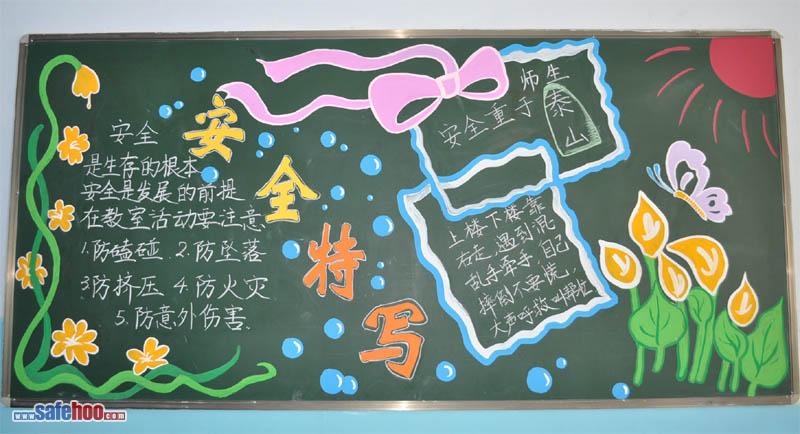 安全特写
安全
是生存的根本
安全是发展的前提
在教室活动要注意
1.防磕碰 2.防坠落
3防挤压 4.防火灾
5.防意外伤害.
师生
安全重于泰山
上楼下楼靠
右走,遇到混
乱手牵手,自己
摔倒不要慌,
大声呼救叫帮忙
www.safehoo.com